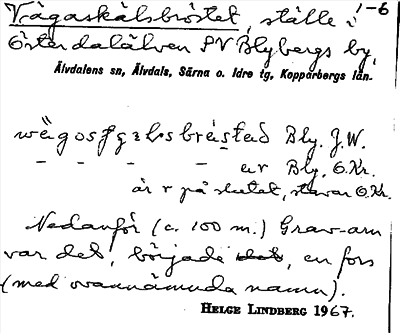 Vägaskälsbröstet, ställe i 1-6
Österdalälven SV Blybergs by,
Älvdalens sn, Älvdals, Särna o. Idre tg, Kopparbergs län.
Bly. J.W.
– – – – er Bly. O.Kr.
är r på slutet, O.Kr.
Nedanför (c. 100 m.) Grav-arn
var det, började det, en fors
(med ovannämnda namn).
HELGE LINDBERG 1967.